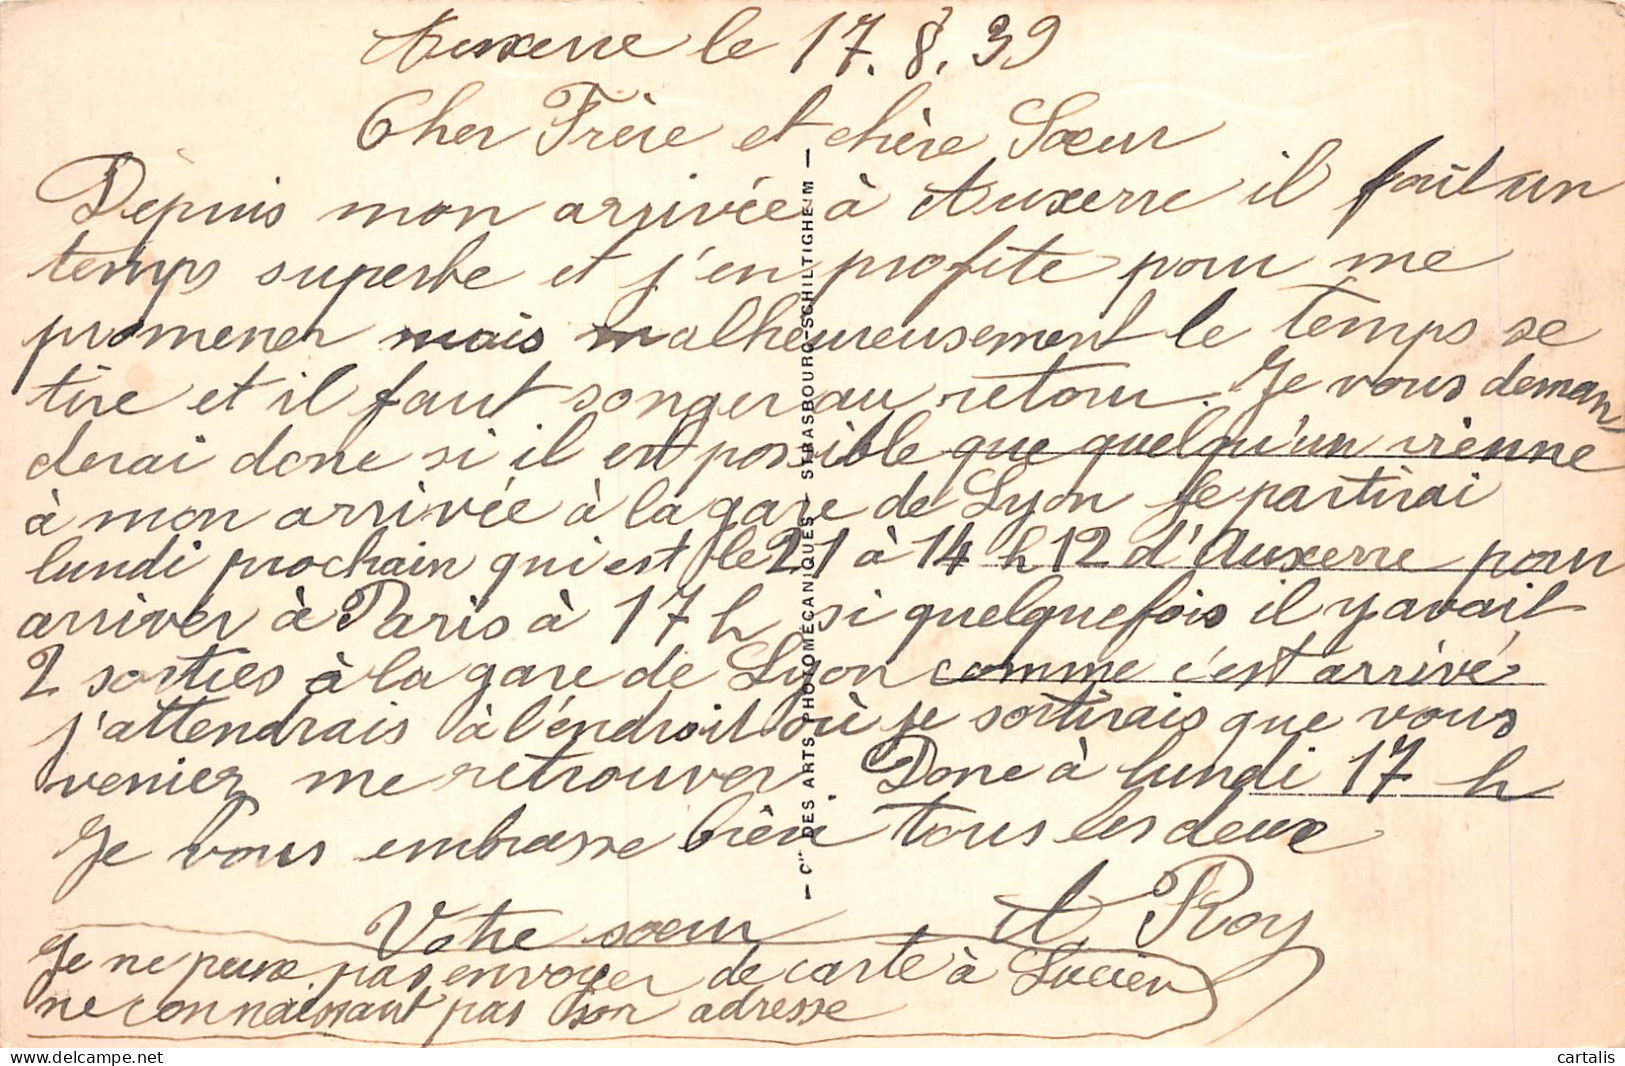 Auxerre le 17.8.39
Cher Frère et chère Sœur
Depuis mon arrivée à Auxerre il fait un
temps superbe et j'en profite pour me
promener mais malheureusement le temps se
tire et il faut songer au retour. Je vous deman
derai donc si il est possible que quelqu'un vienne
à mon arrivée à la gare de Lyon je partirai
lundi prochain qui est le 21 à 14 h 12 d'Auxerre pour
arriver à Paris à 17 h si quelquefois il y avait
2 sorties à la gare de Lyon comme c'est arrivé
j'attendrais à l'endroit où je sortirais que vous
veniez me retrouver Donc à lundi 17 h
Je vous embrasse bien tous les deux
Votre sœur A Roy
Je ne peux pas envoyer de carte à Lucien
ne connaissant pas son adresse
— Cie DES ARTS PHOTOMÉCANIQUES - STRASBOURG-SCHILTIGHEIM —
cartalis